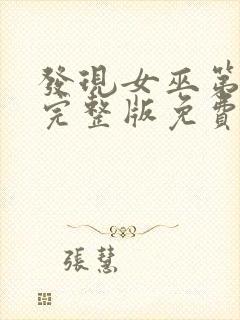 發現女巫第
完整版免費
張慧